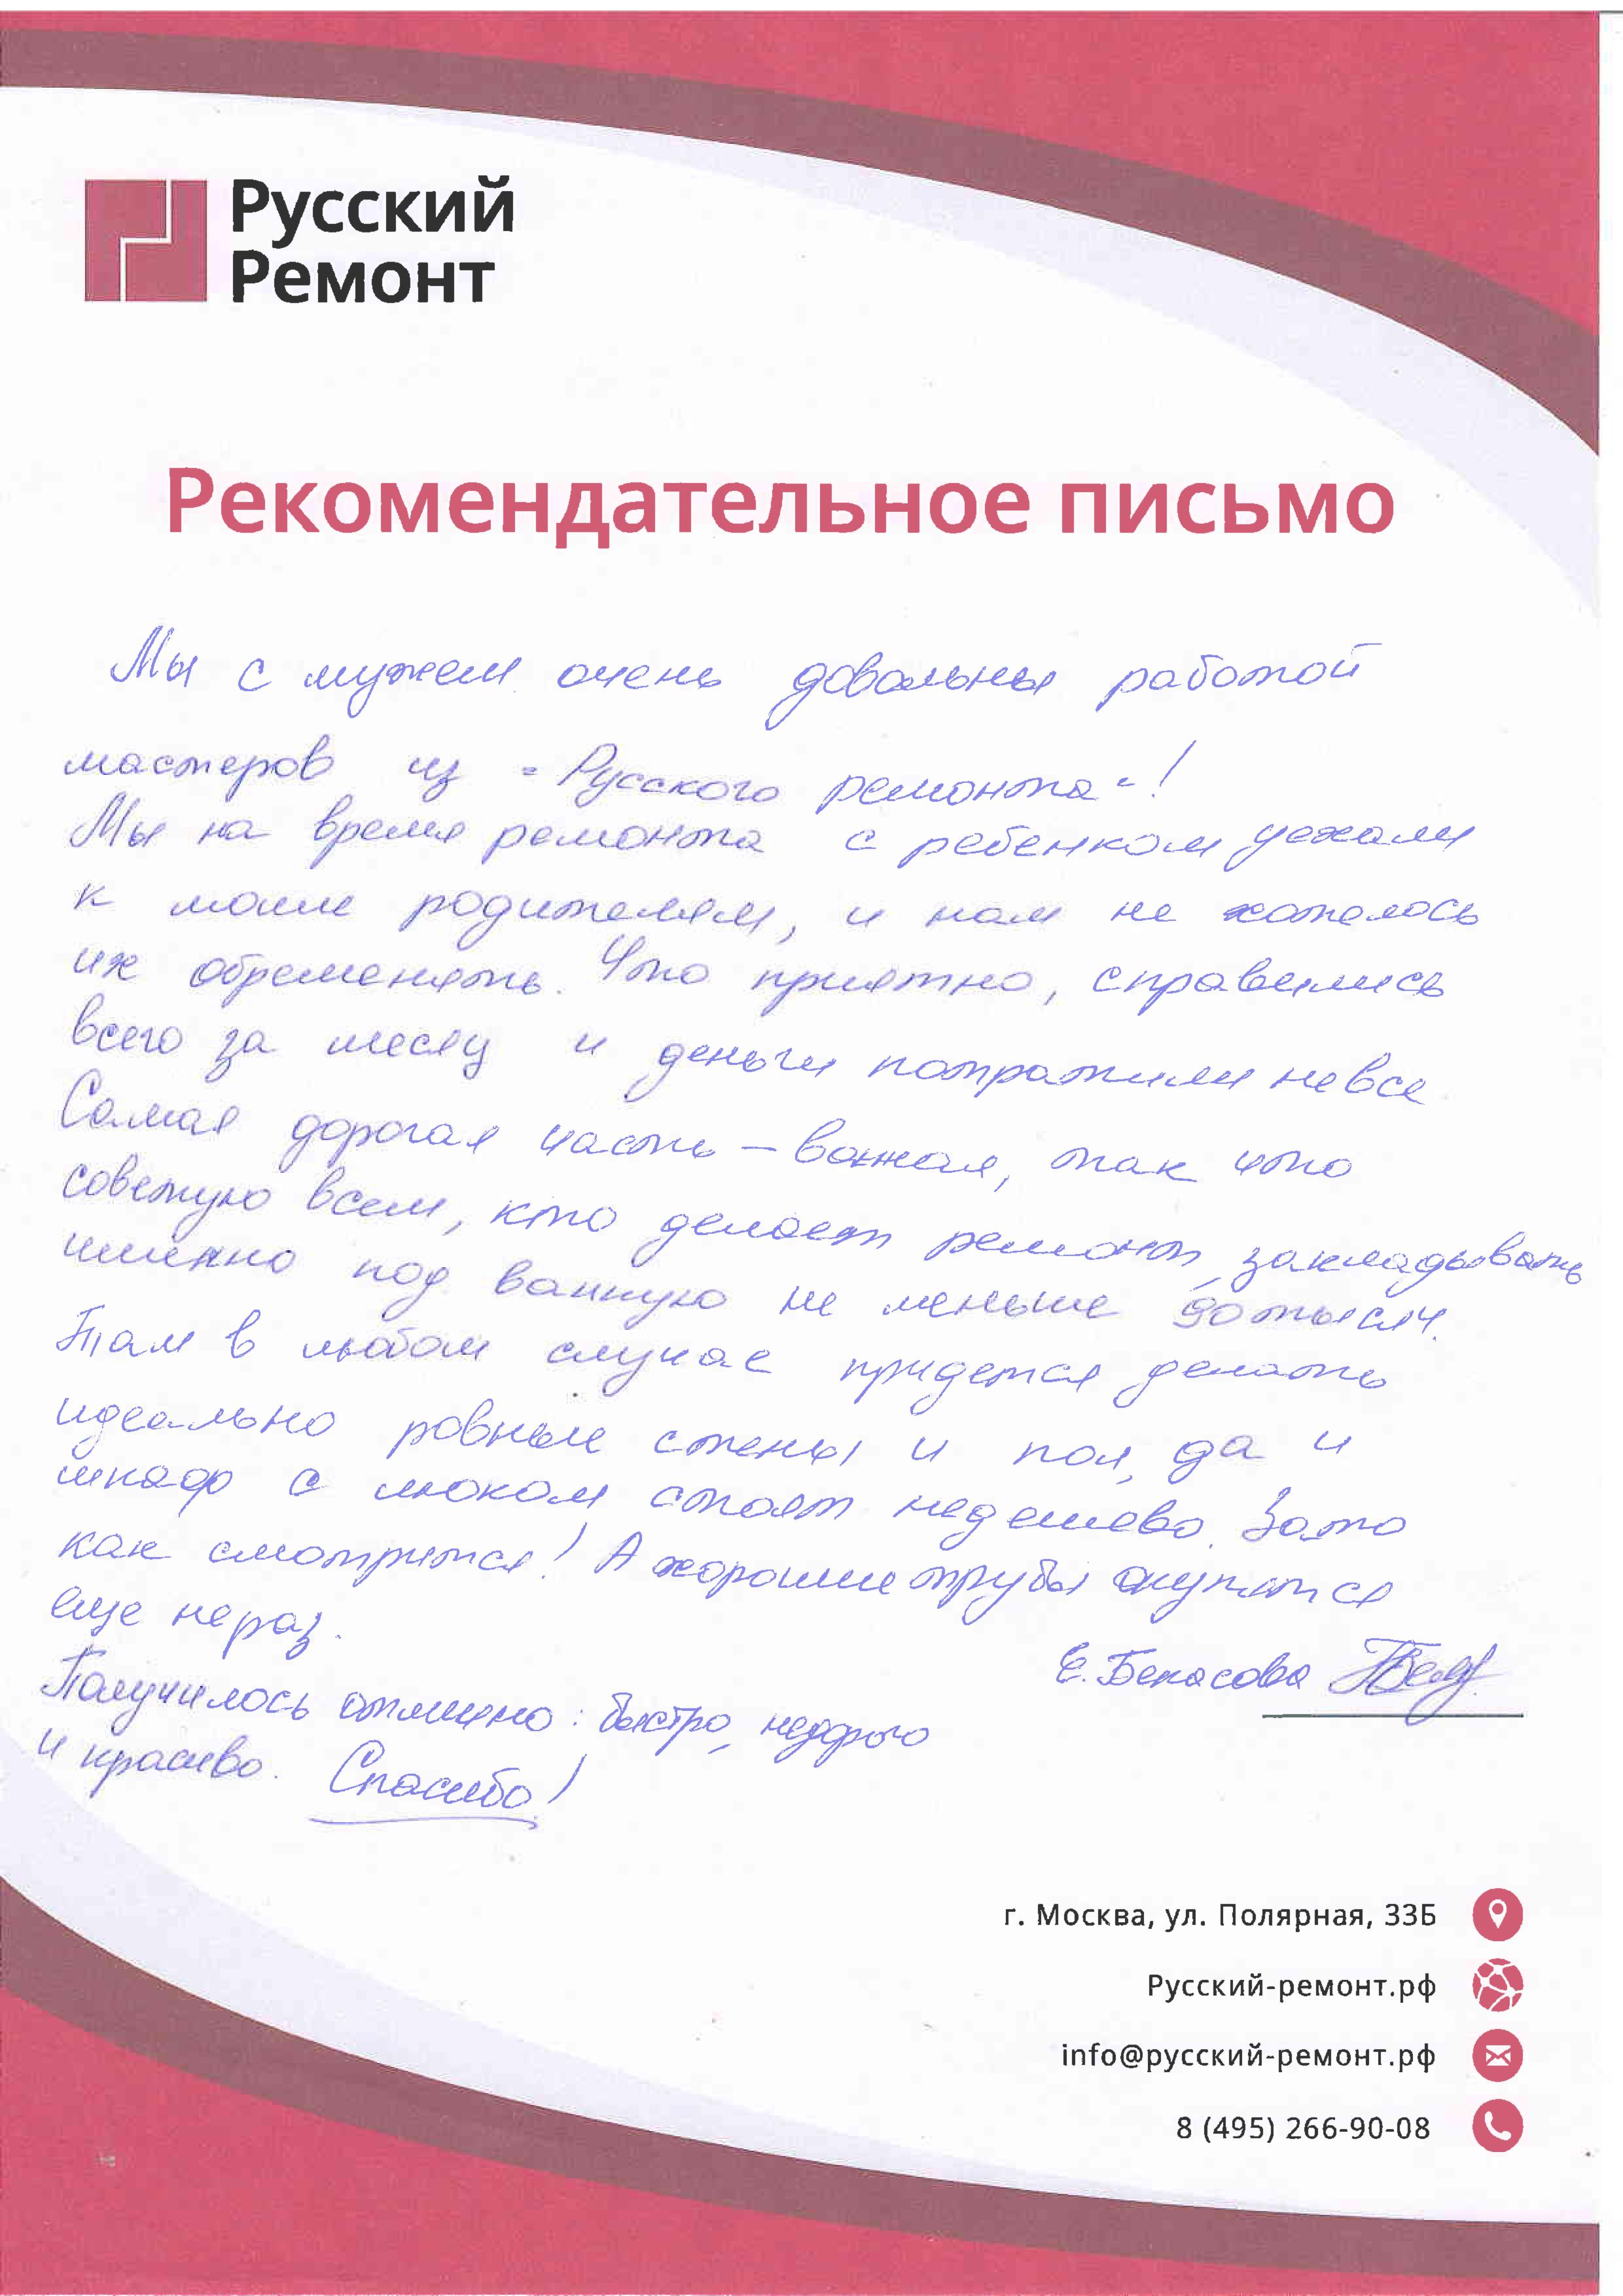 Русский
Ремонт
Рекомендательное письмо
Мы с мужем очень довольны работой
мастеров из "Русского ремонта"!
Мы на время ремонта с ребенком уехали
к моим родителям, и нам не хотелось
их обременять. Что приятно, справились
всего за месяц и деньги потратили не все.
Самая дорогая часть – ванная, так что
советую всем, кто делает ремонт, закладывать
именно под ванную не меньше 90 тысяч.
Там в любом случае придется делать
идеально ровные стены и пол, да и
шкаф с люком стоят недешево. Зато
как смотрится! А хорошие трубы окупятся
еще не раз.
Е. Бекасова
Получилось отлично: быстро, недорого
и красиво. Спасибо!
г. Москва, ул. Полярная, 33Б
Русский-ремонт.рф
info@русский-ремонт.рф
8 (495) 266-90-08